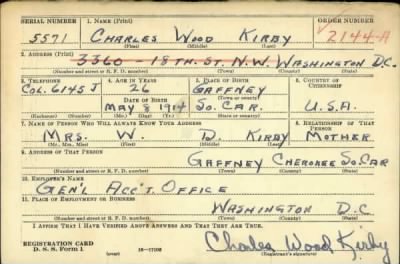 SERIAL NUMBER 1. NAME (Print) ORDER NUMBER
5571 CHARLES WOOD KIRBY 2144-A
(First) (Middle) (Last)
2. ADDRESS (Print)
3360 - 18TH. ST. N.W. WASHINGTON D.C.
(Number and street or R. F. D. number) (Town) (County) (State)
3. TELEPHONE 4. AGE IN YEARS 5. PLACE OF BIRTH 6. COUNTRY OF CITIZENSHIP
COL. 6145 J 26 GAFFNEY
DATE OF BIRTH (Town or county)
MAY 8 1914 SO. CAR. U.S.A.
(Exchange) (Number) (Mo.) (Day) (Yr.) (State or country)
7. NAME OF PERSON WHO WILL ALWAYS KNOW YOUR ADDRESS 8. RELATIONSHIP OF THAT PERSON
MRS. W. D. KIRBY MOTHER
(Mr., Mrs., Miss) (First) (Middle) (Last)
9. ADDRESS OF THAT PERSON
GAFFNEY CHEROKEE SO. CAR
(Number and street or R. F. D. number) (Town) (County) (State)
10. EMPLOYER'S NAME
GEN'L ACC'T. OFFICE
11. PLACE OF EMPLOYMENT OR BUSINESS
WASHINGTON D.C
(Number and street or R. F. D. number) (Town) (County) (State)
I AFFIRM THAT I HAVE VERIFIED ABOVE ANSWERS AND THAT THEY ARE TRUE.
REGISTRATION CARD
D. S. S. Form 1 16-17105 Charles Wood Kirby
(Registrant's signature)